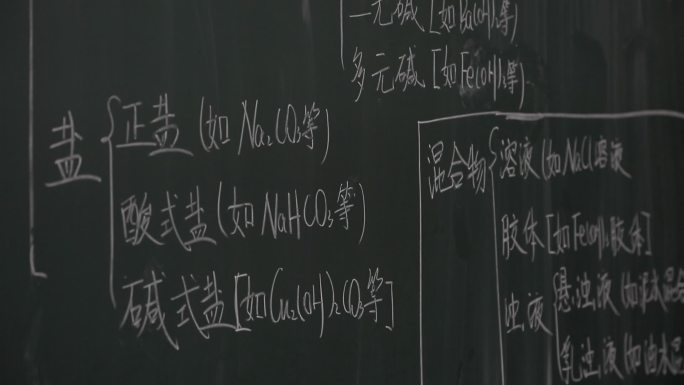 二元碱[如Ba(OH)₂等)
多元碱[如Fe(OH)₃等)
盐
正盐(如Na₂CO₃等)
酸式盐(如NaHCO₃等)
碱式盐[如Cu₂(OH)₂CO₃等]
混合物
溶液(如NaCl溶液
胶体[如Fe(OH)₃胶体]
浊液
悬浊液(如泥水混合
乳浊液(如油水混